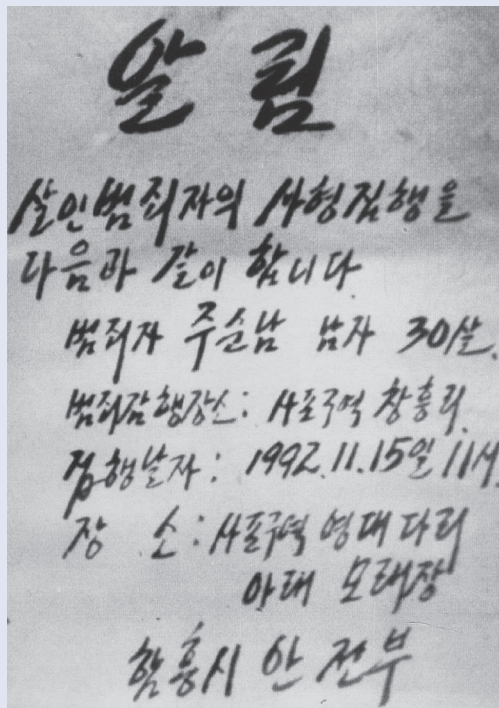 알 림
살인범죄자의 사형집행을
다음과 같이 합니다
범죄자 주순남 남자 30살.
범죄감행장소: 사포구역 창흥리.
집행날자: 1992.11.15일 11시
장 소: 사포구역 영대다리
아래 모래장
함흥시 안전부